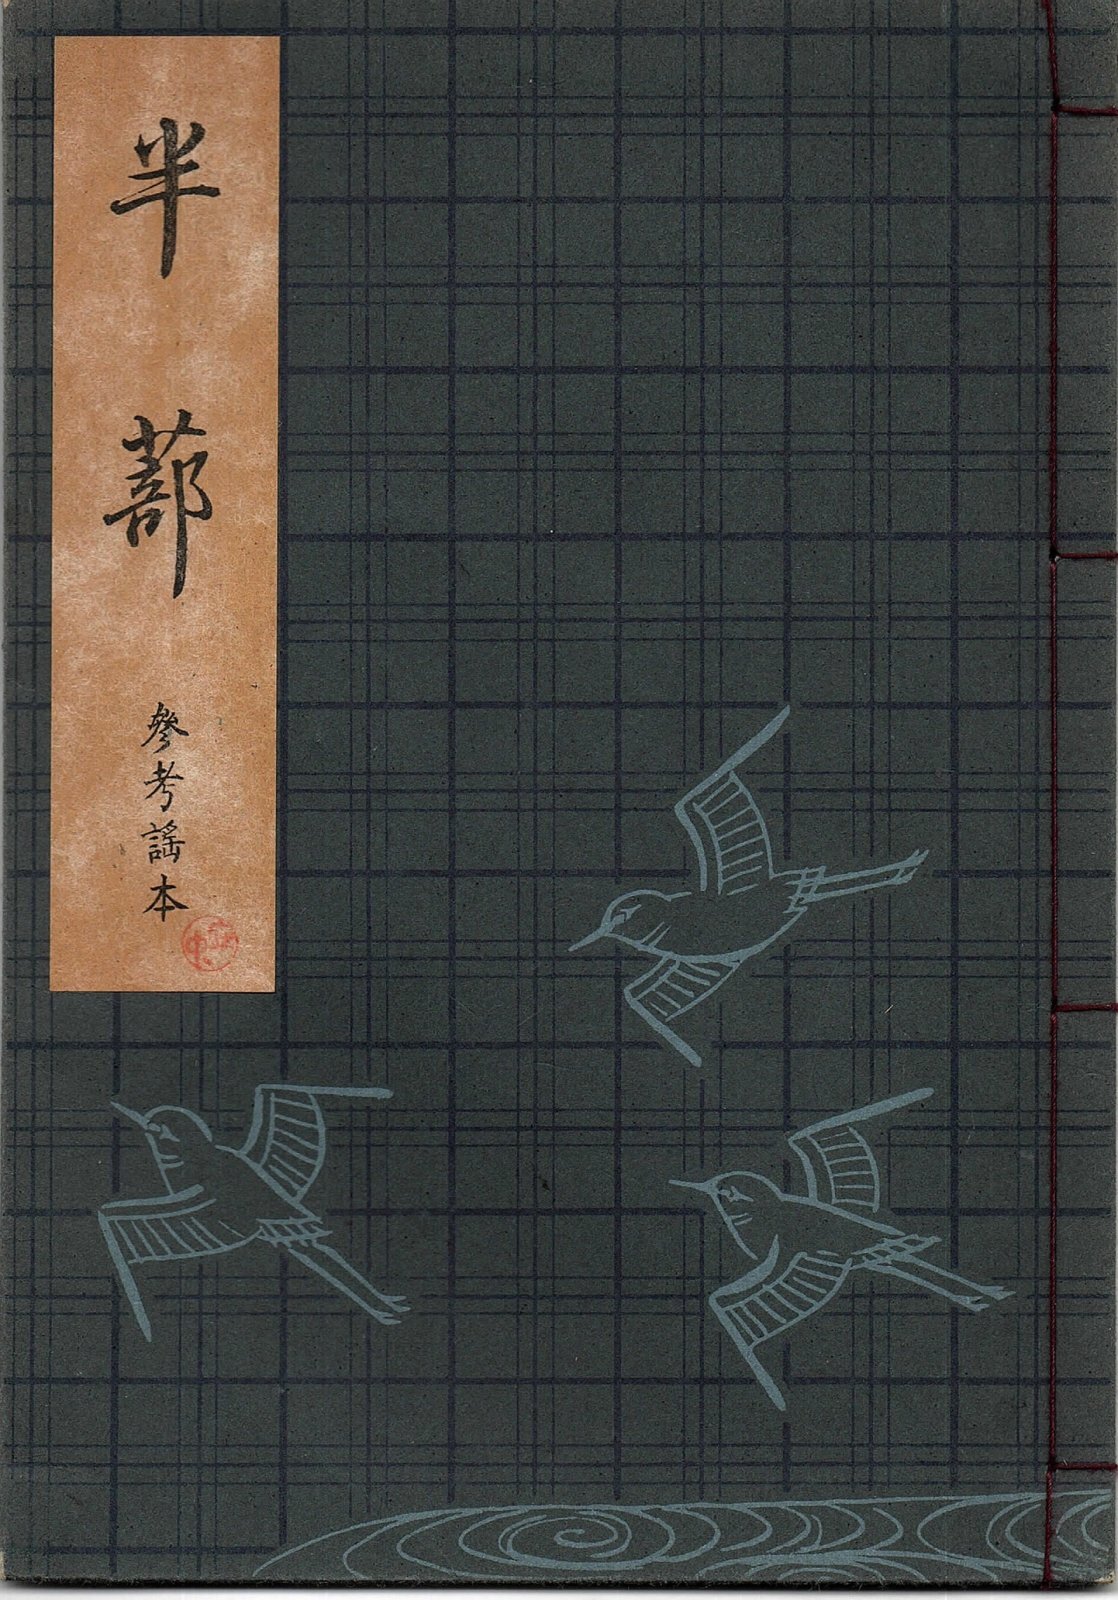 半蔀
參考謠本